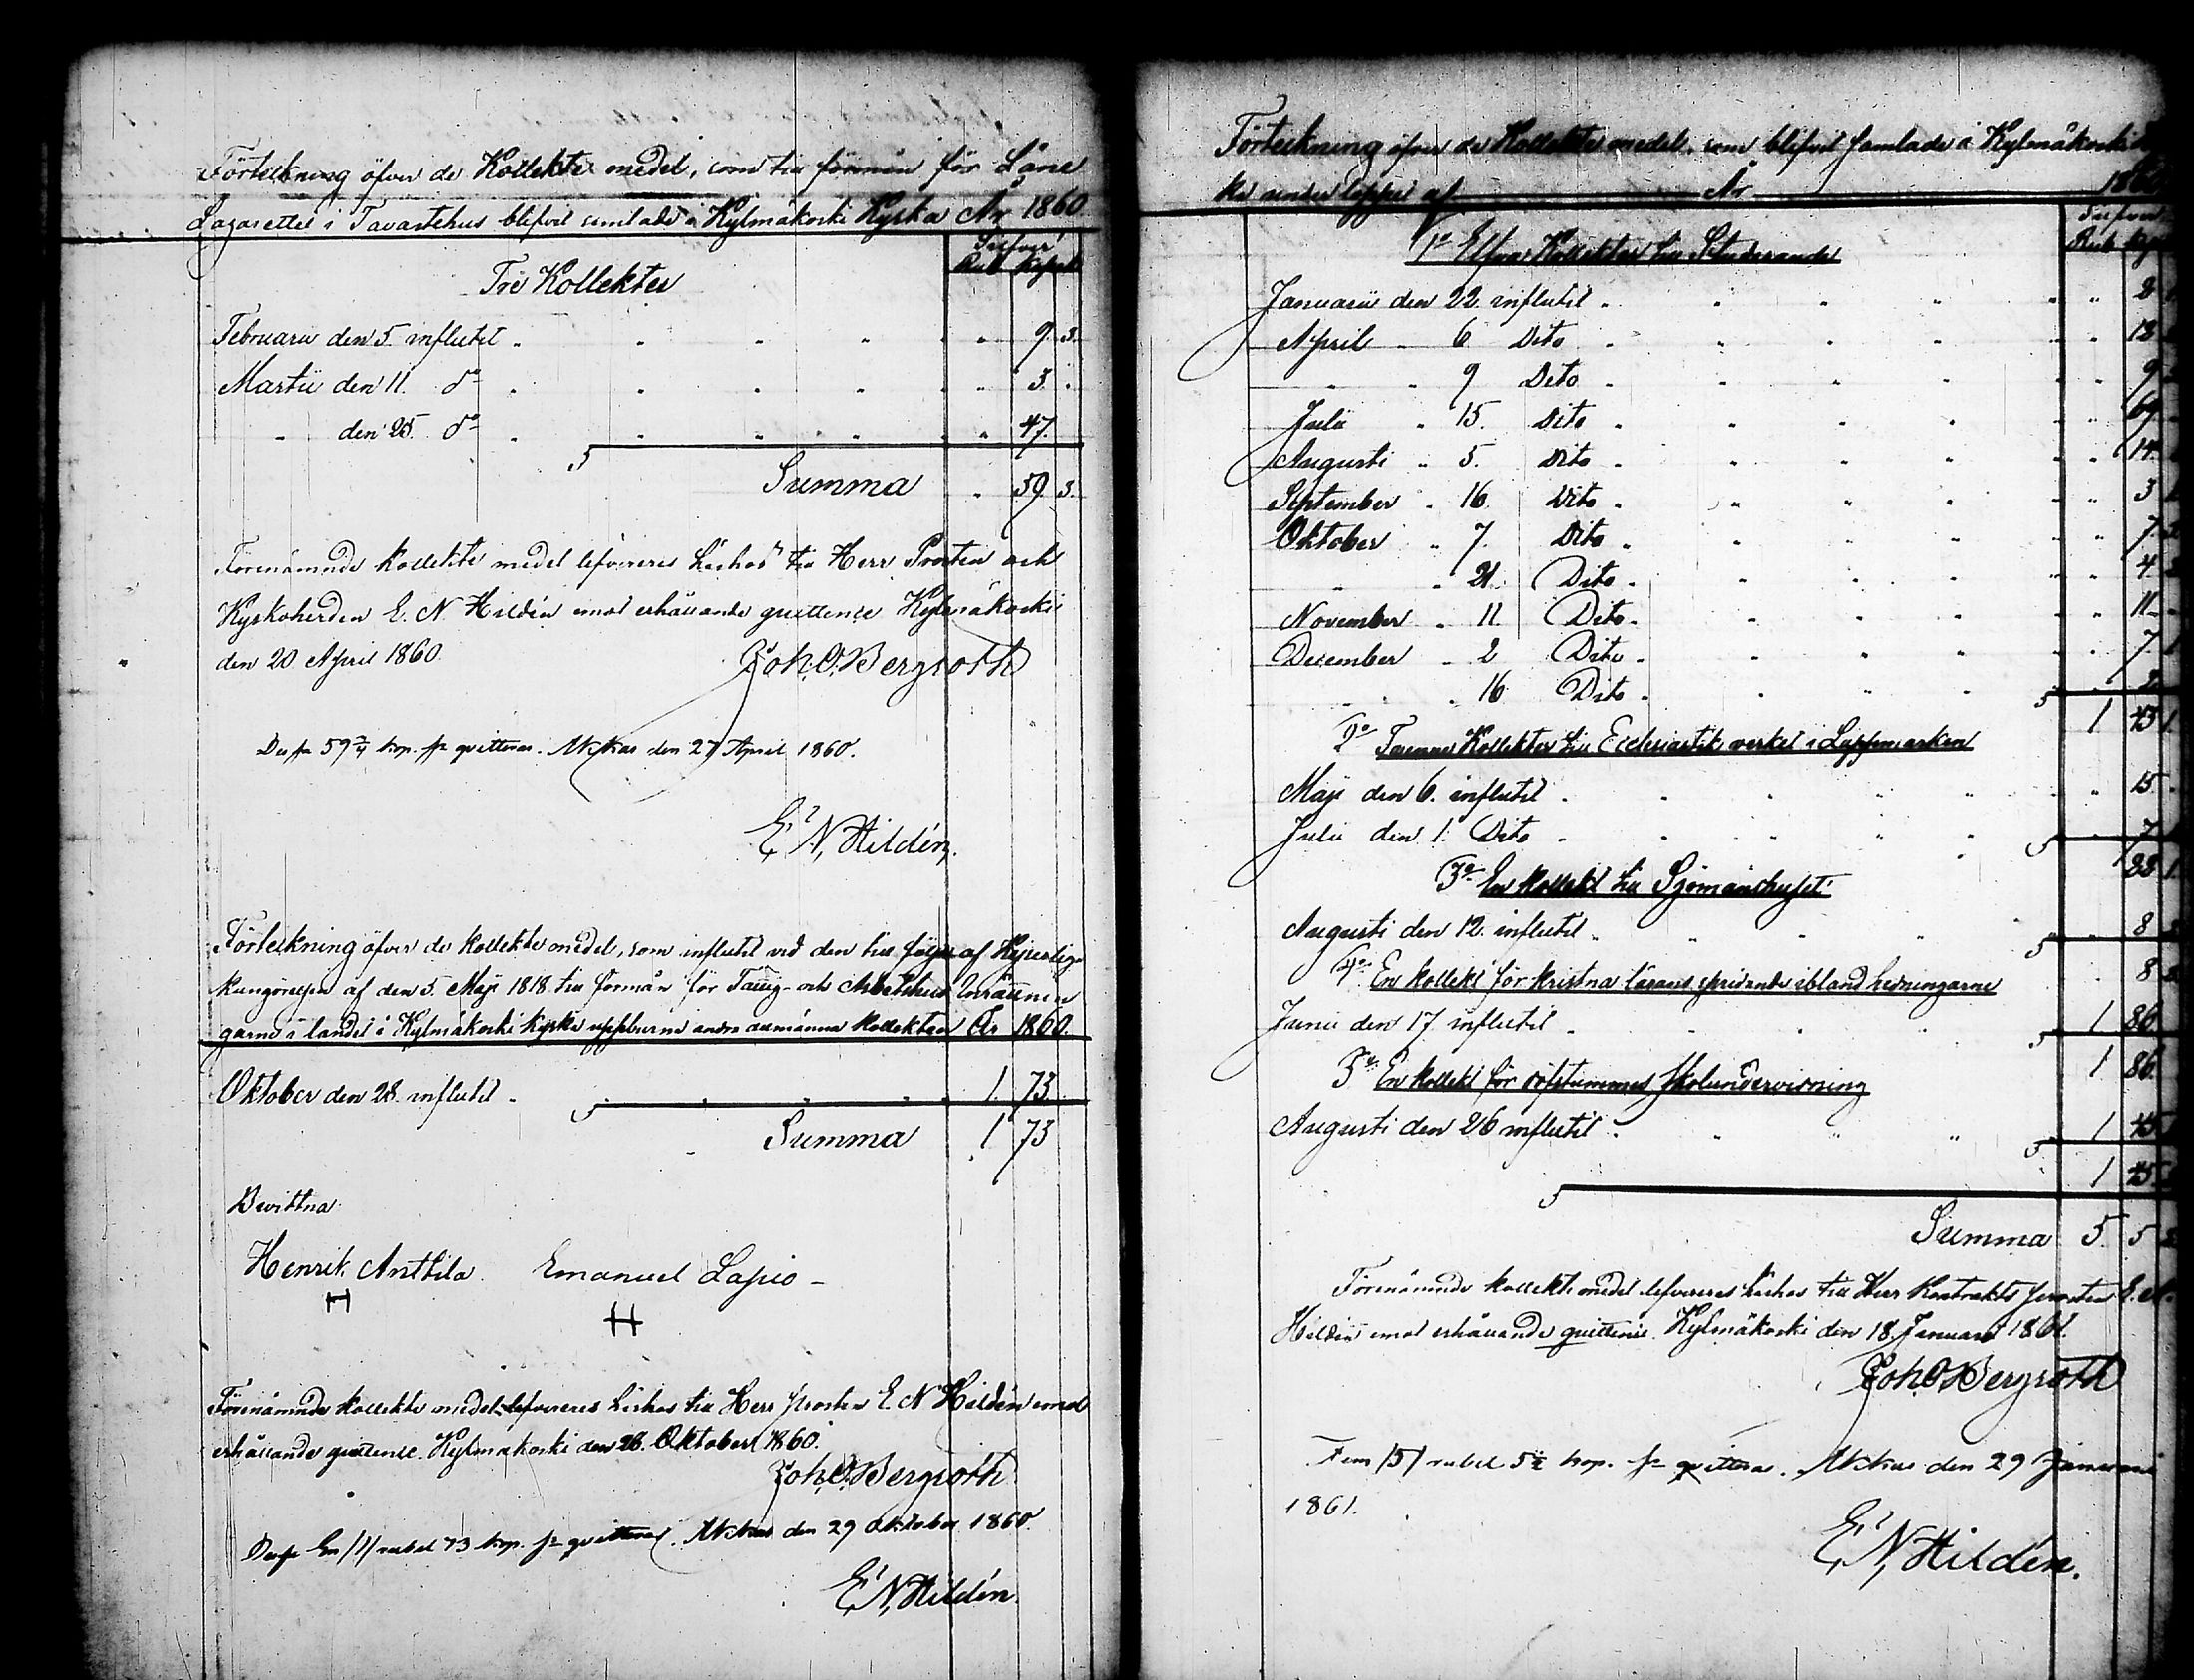 Förteckning öfver de Kollekte medel, som till förmån för Läns
Lazarettet i Tavastehus blifvit samlade i Kylmäkoski Kyrka År 1860
Silfver
Rub Kopek
Tre Kollekter
Februarii den 5. influtit " " " " " 9. 3.
Martii den 11. do " " " " " 3. "
" den 25. do " " " " " 47.
Summa " 59. 3.
Förenämnde kollekte medel lefvereres härhos till Herr Prosten och
Kyrkoherden E. N Hildén emot erhållande quittence Kylmäkoski
den 20 April 1860. Joh. O. Bergroth
59 3/4 kop. sr qvitteras. Akkas den 27 April 1860.
E. N. Hildén.
Förteckning öfver de kollekte medel, som influtit vid den till följe af Kejserliga
kungörelsen af den 5. Maji 1818 till förmån för Fattig- och Arbetshus Inrättnin
garne i landet i Kylmäkoski kyrka uppburne andra allmänna kollekten År 1860.
Oktober den 28. influtit " " " " 1. 73.
Summa 1 73
Bevittna
Henrik Anttila. Emanuel Lapio –
Förenämnde kollekte medel lefvereres härhos till Herr Prosten E. N Hildén emot
erhållande quittence. Kylmäkoski den 28. Oktober 1860.
Joh. O. Bergroth
En /1/ rubel 73 kop. sr qvitteras. Akkas den 29 Oktober 1860.
E. N. Hildén.
Förteckning öfver de Kollekte medel, som blifvit samlade i Kylmäkoski
ka under loppet af År 1860
Silfver
Rub Kop
1o Elfva Kollekter till Studerande
Januarii den 22. influtit " " " " " 2
April " 6 Dito " " " " " 13
" " 9 Dito " " " " " 9
Julii " 15. Dito " " " " " 69
Augusti " 5. Dito " " " " " 14
September " 16. Dito " " " " " 3
Oktober " 7. Dito " " " " " 7
" " 21. Dito " " " " " 4
November " 11. Dito " " " " " 11
December " 2 Dito " " " " " 7
" " 16 Dito " " " " 2
1 45
2o Tvenne Kollekter till Ecclesiastik verket i Lappmarken
Maji den 6. influtit " " " " " 15
Julii den 1. Dito " " " " " 7
3o En kollekt till Sjömanshuset
Augusti den 12. influtit " " " " 8
4o En kollekt för kristna lärans spridande ibland hedningarne
8
Junii den 17. influtit " " " 1 86.
1 86.
5o En kollekt för döfstummes skolundervisning
Augusti den 26 influtit " " " " 1 45
1 45
Summa 5. 5
Förenämnde kollekte medel lefvereres härhos till Herr Kontrakts prosten E. N.
Hildén emot erhållande quittence. Kylmäkoski den 18. Januari 1861.
Joh. O. Bergroth
Fem /5/ rubel 5 1/2 kop. sr qvitteras. Akkas den 29 Januari
1861.
E. N. Hildén.